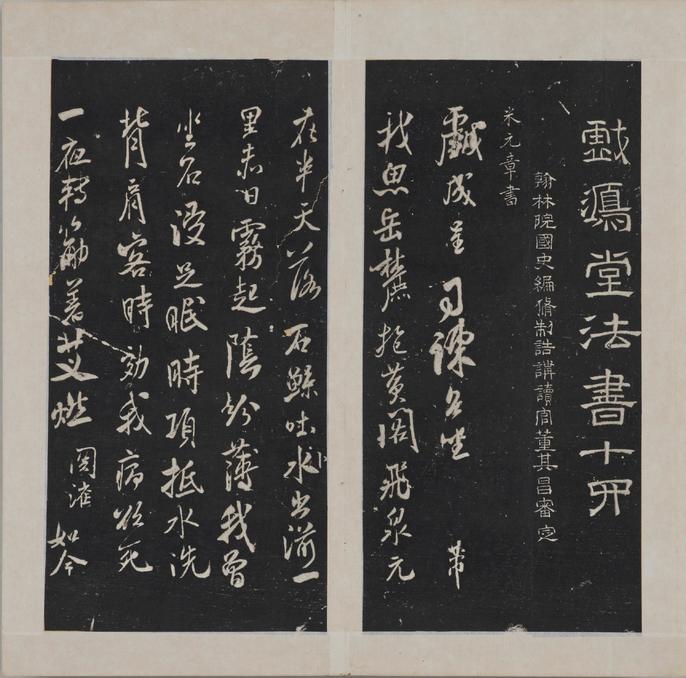 戲鴻堂法書十四
翰林院國史編脩制誥講讀官董其昌審定
米元章書
戲成呈司諫台坐 芾
我思岳麓抱黃閣飛泉元
在半天落石鯨吐水出湔一
里赤日霧起陰紛薄我曾
坐石浸足眠時項抵水洗
背肩客時効我病欲死
一夜轉筋著艾燃 関灌 如今